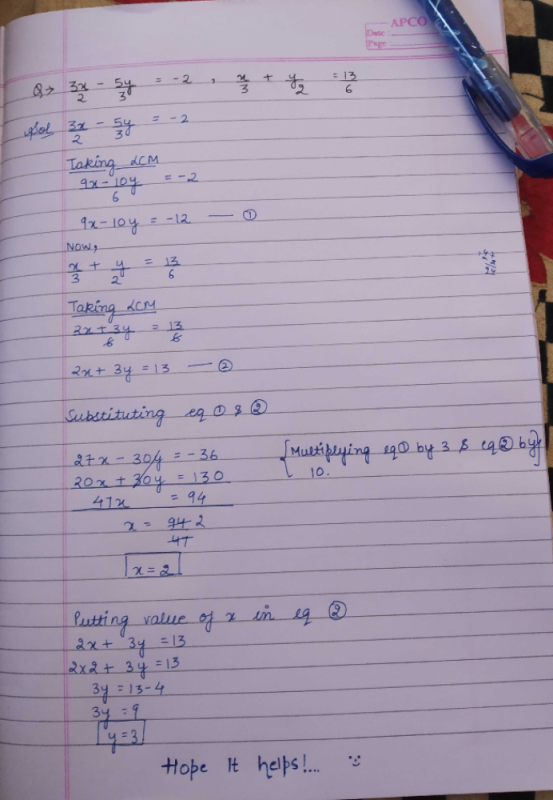 APCO
Date :
Page :
Q→ 3x/2 - 5y/3 = -2 , x/3 + y/2 = 13/6
Sol 3x/2 - 5y/3 = -2
Taking LCM
9x-10y/6 = -2
9x-10y = -12 — ①
Now,
x/3 + y/2 = 13/6
Taking LCM
2x+3y/6 = 13/6
2x+3y = 13 — ②
Substituting eq ① & ②
27x - 30y = -36 {Multiplying eq① by 3 & eq② by}
20x + 30y = 130 10.
47x = 94
x = 94/47 2
x=2
Putting value of x in eq ②
2x+ 3y =13
2x2+ 3y =13
3y = 13-4
3y = 9
y=3
Hope It helps!...